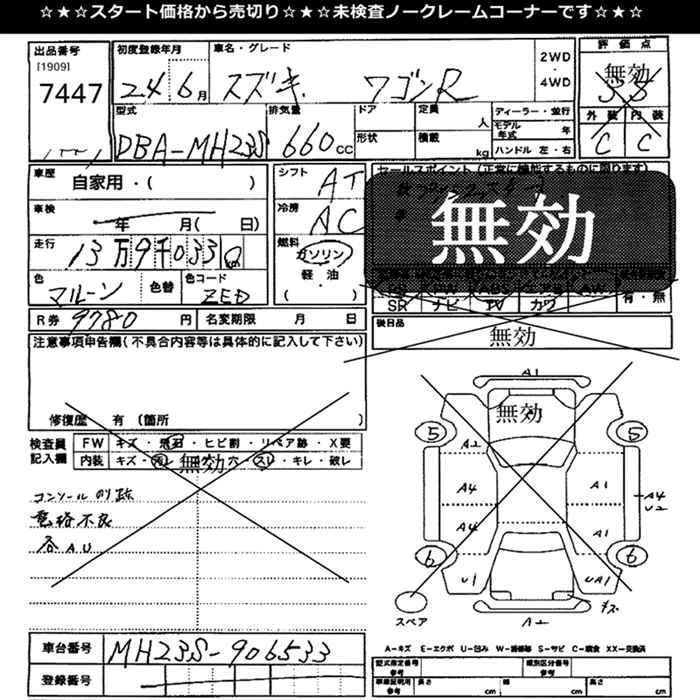 ☆★☆★スタート価格から売切り☆★☆★未検査ノークレームコーナーです☆★☆
出品番号 初度登録年月 車名・グレード 2WD・4WD 評価点
[1909]
7447 24 6月 スズキ ワゴンR 無効
型式 排気量 ドア 定員 人 ディーラー・並行 外装 内装
DBA-MH23S 660cc 形状 積載 kg モデル年式 年 C C
ハンドル 左・右
車歴 自家用・( ) シフト AT セールスポイント(正常に機能するものに限ります)
車検 年 月( 日) 冷房 AC 無効
走行 13万9千033km 燃料 ガソリン
色 マルーン 色替 色コード ZED 軽・油 ( )
SR ナビ TV カワ AW 有・無
R券 9780円 名変期限 月 日 後日品 無効
注意事項申告欄(不具合内容等は具体的に記入して下さい)
修復歴 有(箇所 )
検査員記入欄 FW キズ・飛石・ヒビ割・リペア跡・X要
内装 キズ・汚レ・無効 穴・スレ・キレ・破レ
コンソール
不良
AU
A1
無効
5 A2 5
A4 A1 A4 U2
A4 A1
6 6
U1 UA1
スペア A2 キズ
A-キズ E-エクボ U-凹み W-補修跡 S-サビ C-腐食 XX-交換済
車台番号 MH23S-906533 型式指定番号 参考 類別区分番号 参考
登録番号 車検証明用 参考 長さ cm 幅 cm 高さ cm